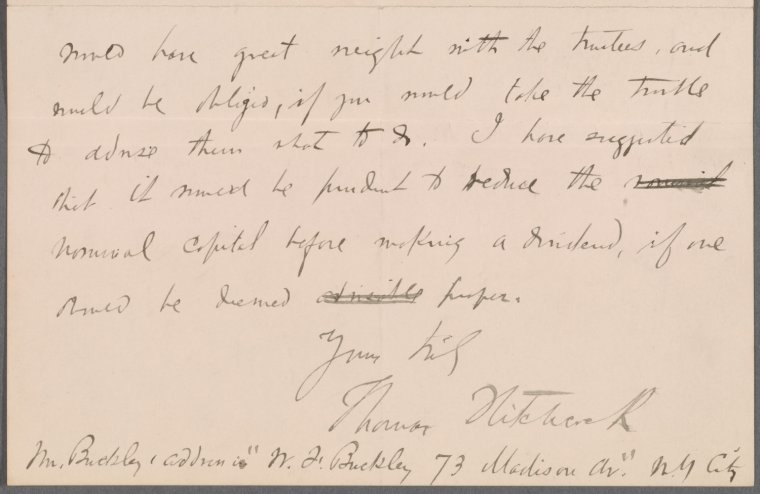 would have great weight with the trustees, and
would be obliged, if you would take the trouble
to advise them what to do. I have suggested
that it would be prudent to reduce the nominal
nominal capital before making a dividend, if one
should be deemed advisable proper.
Yours truly
Thomas Hitchcock
Mr. Buckley's address is "W. F. Buckley 73 Madison Av." N.Y City